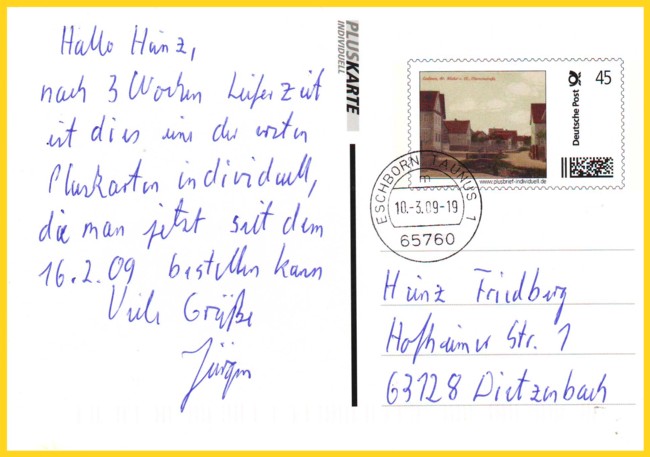 Hallo Heinz,
nach 3 Wochen Lieferzeit
ist dies eine der ersten
Pluskarten individuell,
die man jetzt seit dem
16.2.09 bestellen kann
Viele Grüße
Jürgen
PLUSKARTE
INDIVIDUELL
Deutsche Post
45
www.plusbrief-individuell.de
ESCHBORN, TAUNUS 1
m
10.-3.09-19
65760
Heinz Friedberg
Hofheimer Str. 1
63128 Dietzenbach